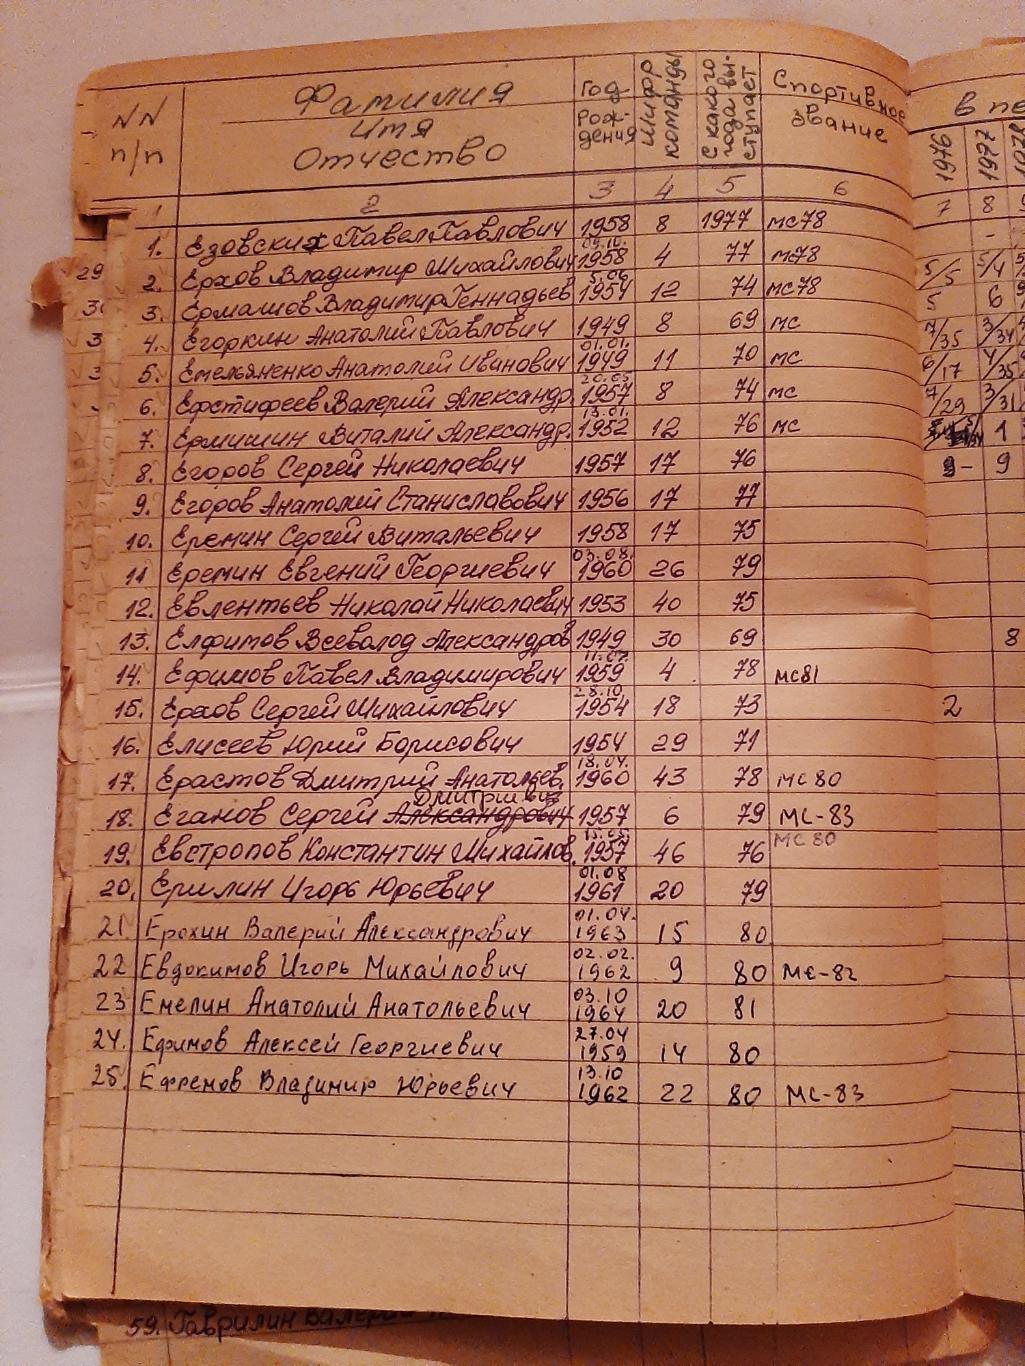 NN п/п Фамилия Имя Отчество Год рождения Шифр команды С какого года выступает Спортивное звание В пе 1976 1977 1978
1 2 3 4 5 6 7 8
1. Езовских Павел Павлович 1958 8 1977 мс78 -
29 2. Ерхов Владимир Михайлович 09.10. 1958 4 77 мс78 5/5 5/4
30 3. Ермашов Владимир Геннадьев 5.06 1954 12 74 мс78 5 6
3 4. Егоркин Анатолий Павлович 1949 8 69 мс 7/35 3/34
3 5. Емельяненко Анатолий Иванович 01.01. 1949 11 70 мс 6/17 4/35
6. Ефстифеев Валерий Александр. 20.05 1957 8 74 мс 7/29 3/31
7. Ермишин Виталий Александр. 13.01. 1952 12 76 мс 1
8. Егоров Сергей Николаевич 1957 17 76 9- 9
9. Егоров Анатолий Станиславович 1956 17 77
10. Еремин Сергей Витальевич 1958 17 75
11 Еремин Евгений Георгиевич 03.08. 1960 26 79
12. Евлентьев Николай Николаевич 1953 40 75
13. Елфимов Всеволод Александров 1949 30 69 8
14. Ефимов Павел Владимирович 11.07. 1959 4 78 мс81
15. Ерхов Сергей Михайлович 28.10. 1954 18 73 2
16. Елисеев Юрий Борисович 1954 29 71
17. Ерастов Дмитрий Анатольев. 18.04. 1960 43 78 мс80
18. Еганов Сергей Александрович Дмитриевич 1957 6 79 МС-83
19. Евстропов Константин Михайлов. 15.05. 1957 46 76 МС 80
20. Ершлин Игорь Юрьевич 01.08 1961 20 79
21. Ерохин Валерий Александрович 01.04. 1963 15 80
22 Евдокимов Игорь Михайлович 02.02. 1962 9 80 МС-82
23 Емелин Анатолий Анатольевич 03.10 1964 20 81
24. Ефимов Алексей Георгиевич 27.04 1959 14 80
25. Ефремов Владимир Юрьевич 13.10 1962 22 80 МС-83
59. Гаврилин Валерий